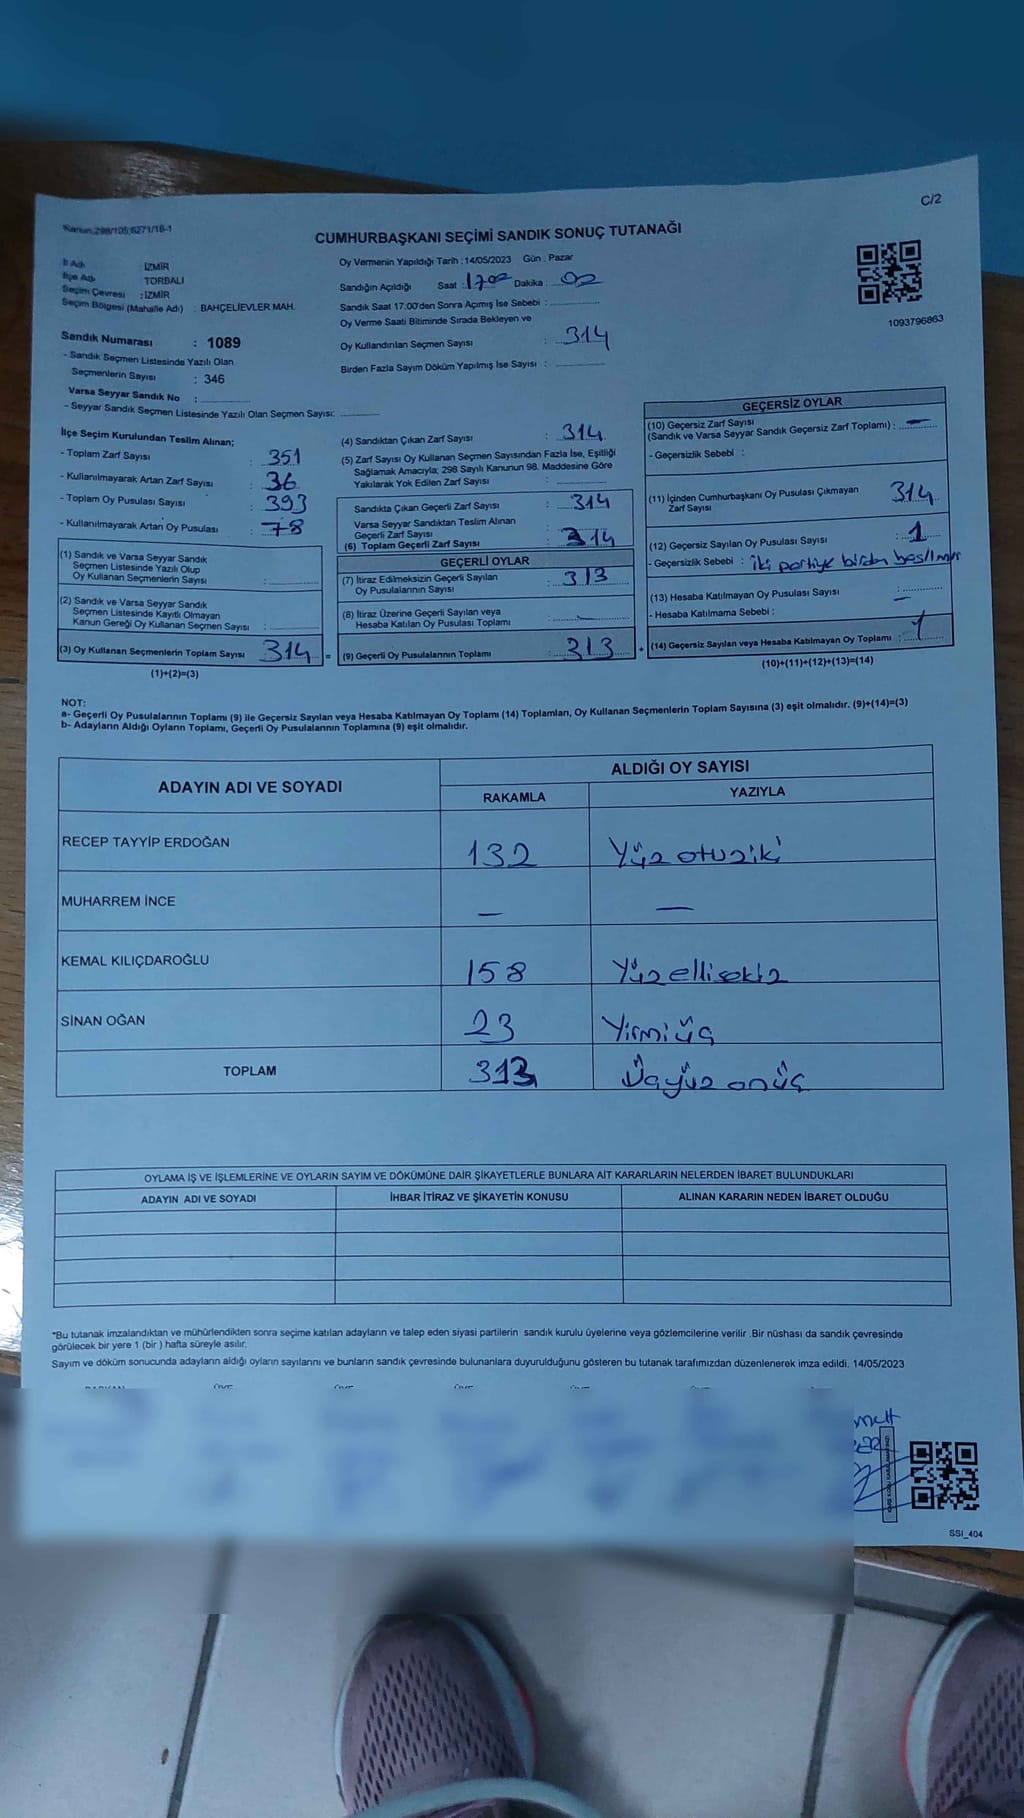 Kanun:298/105;6271/18-1
C/2
CUMHURBAŞKANI SEÇİMİ SANDIK SONUÇ TUTANAĞI
İl Adı : İZMİR
İlçe Adı : TORBALI
Seçim Çevresi : İZMİR
Seçim Bölgesi (Mahalle Adı) : BAHÇELİEVLER MAH.
Sandık Numarası : 1089
- Sandık Seçmen Listesinde Yazılı Olan
Seçmenlerin Sayısı : 346
Varsa Seyyar Sandık No :
- Seyyar Sandık Seçmen Listesinde Yazılı Olan Seçmen Sayısı:
Oy Vermenin Yapıldığı Tarih :14/05/2023 Gün : Pazar
Sandığın Açıldığı Saat : 1700 Dakika : 00
Sandık Saat 17.00'den Sonra Açımış İse Sebebi :
Oy Verme Saati Bitiminde Sırada Bekleyen ve
Oy Kullandırılan Seçmen Sayısı : 314
Birden Fazla Sayım Döküm Yapılmış İse Sayısı :
1093796863
İlçe Seçim Kurulundan Teslim Alınan;
- Toplam Zarf Sayısı : 351
- Kullanılmayarak Artan Zarf Sayısı : 36
- Toplam Oy Pusulası Sayısı : 393
- Kullanılmayarak Artan Oy Pusulası : 78
(1) Sandık ve Varsa Seyyar Sandık
Seçmen Listesinde Yazılı Olup
Oy Kullanan Seçmenlerin Sayısı :
(2) Sandık ve Varsa Seyyar Sandık
Seçmen Listesinde Kayıtlı Olmayan
Kanun Gereği Oy Kullanan Seçmen Sayısı :
(3) Oy Kullanan Seçmenlerin Toplam Sayısı 314 =
(1)+(2)=(3)
(4) Sandıktan Çıkan Zarf Sayısı : 314
(5) Zarf Sayısı Oy Kullanan Seçmen Sayısından Fazla İse, Eşitliği
Sağlamak Amacıyla; 298 Sayılı Kanunun 98. Maddesine Göre
Yakılarak Yok Edilen Zarf Sayısı :
Sandıkta Çıkan Geçerli Zarf Sayısı : 314
Varsa Seyyar Sandıktan Teslim Alınan
Geçerli Zarf Sayısı :
(6) Toplam Geçerli Zarf Sayısı : 314
GEÇERLİ OYLAR
(7) İtiraz Edilmeksizin Geçerli Sayılan
Oy Pusulalarının Sayısı : 313
(8) İtiraz Üzerine Geçerli Sayılan veya
Hesaba Katılan Oy Pusulası Toplamı : —
(9) Geçerli Oy Pusulalarının Toplamı : 313 +
GEÇERSİZ OYLAR
(10) Geçersiz Zarf Sayısı
(Sandık ve Varsa Seyyar Sandık Geçersiz Zarf Toplamı) : —
- Geçersizlik Sebebi :
(11) İçinden Cumhurbaşkanı Oy Pusulası Çıkmayan
Zarf Sayısı 314
(12) Geçersiz Sayılan Oy Pusulası Sayısı : 1
- Geçersizlik Sebebi : iki partiye birden basılmış
(13) Hesaba Katılmayan Oy Pusulası Sayısı : —
- Hesaba Katılmama Sebebi :
(14) Geçersiz Sayılan veya Hesaba Katılmayan Oy Toplamı : 1
(10)+(11)+(12)+(13)=(14)
NOT:
a- Geçerli Oy Pusulalarının Toplamı (9) ile Geçersiz Sayılan veya Hesaba Katılmayan Oy Toplamı (14) Toplamları, Oy Kullanan Seçmenlerin Toplam Sayısına (3) eşit olmalıdır. (9)+(14)=(3)
b- Adayların Aldığı Oyların Toplamı, Geçerli Oy Pusulalarının Toplamına (9) eşit olmalıdır.
ADAYIN ADI VE SOYADI ALDIĞI OY SAYISI
RAKAMLA YAZIYLA
RECEP TAYYİP ERDOĞAN 132 Yüz otuziki
MUHARREM İNCE — —
KEMAL KILIÇDAROĞLU 158 Yüzellisekiz
SİNAN OĞAN 23 Yirmiüç
TOPLAM 313 Üçyüz onüç
OYLAMA İŞ VE İŞLEMLERİNE VE OYLARIN SAYIM VE DÖKÜMÜNE DAİR ŞİKAYETLERLE BUNLARA AİT KARARLARIN NELERDEN İBARET BULUNDUKLARI
ADAYIN ADI VE SOYADI İHBAR İTİRAZ VE ŞİKAYETİN KONUSU ALINAN KARARIN NEDEN İBARET OLDUĞU
*Bu tutanak imzalandıktan ve mühürlendikten sonra seçime katılan adayların ve talep eden siyasi partilerin sandık kurulu üyelerine veya gözlemcilerine verilir .Bir nüshası da sandık çevresinde
görülecek bir yere 1 (bir ) hafta süreyle asılır.
Sayım ve döküm sonucunda adayların aldığı oyların sayılarını ve bunların sandık çevresinde bulunanlara duyurulduğunu gösteren bu tutanak tarafımızdan düzenlenerek imza edildi. 14/05/2023
SSI_404